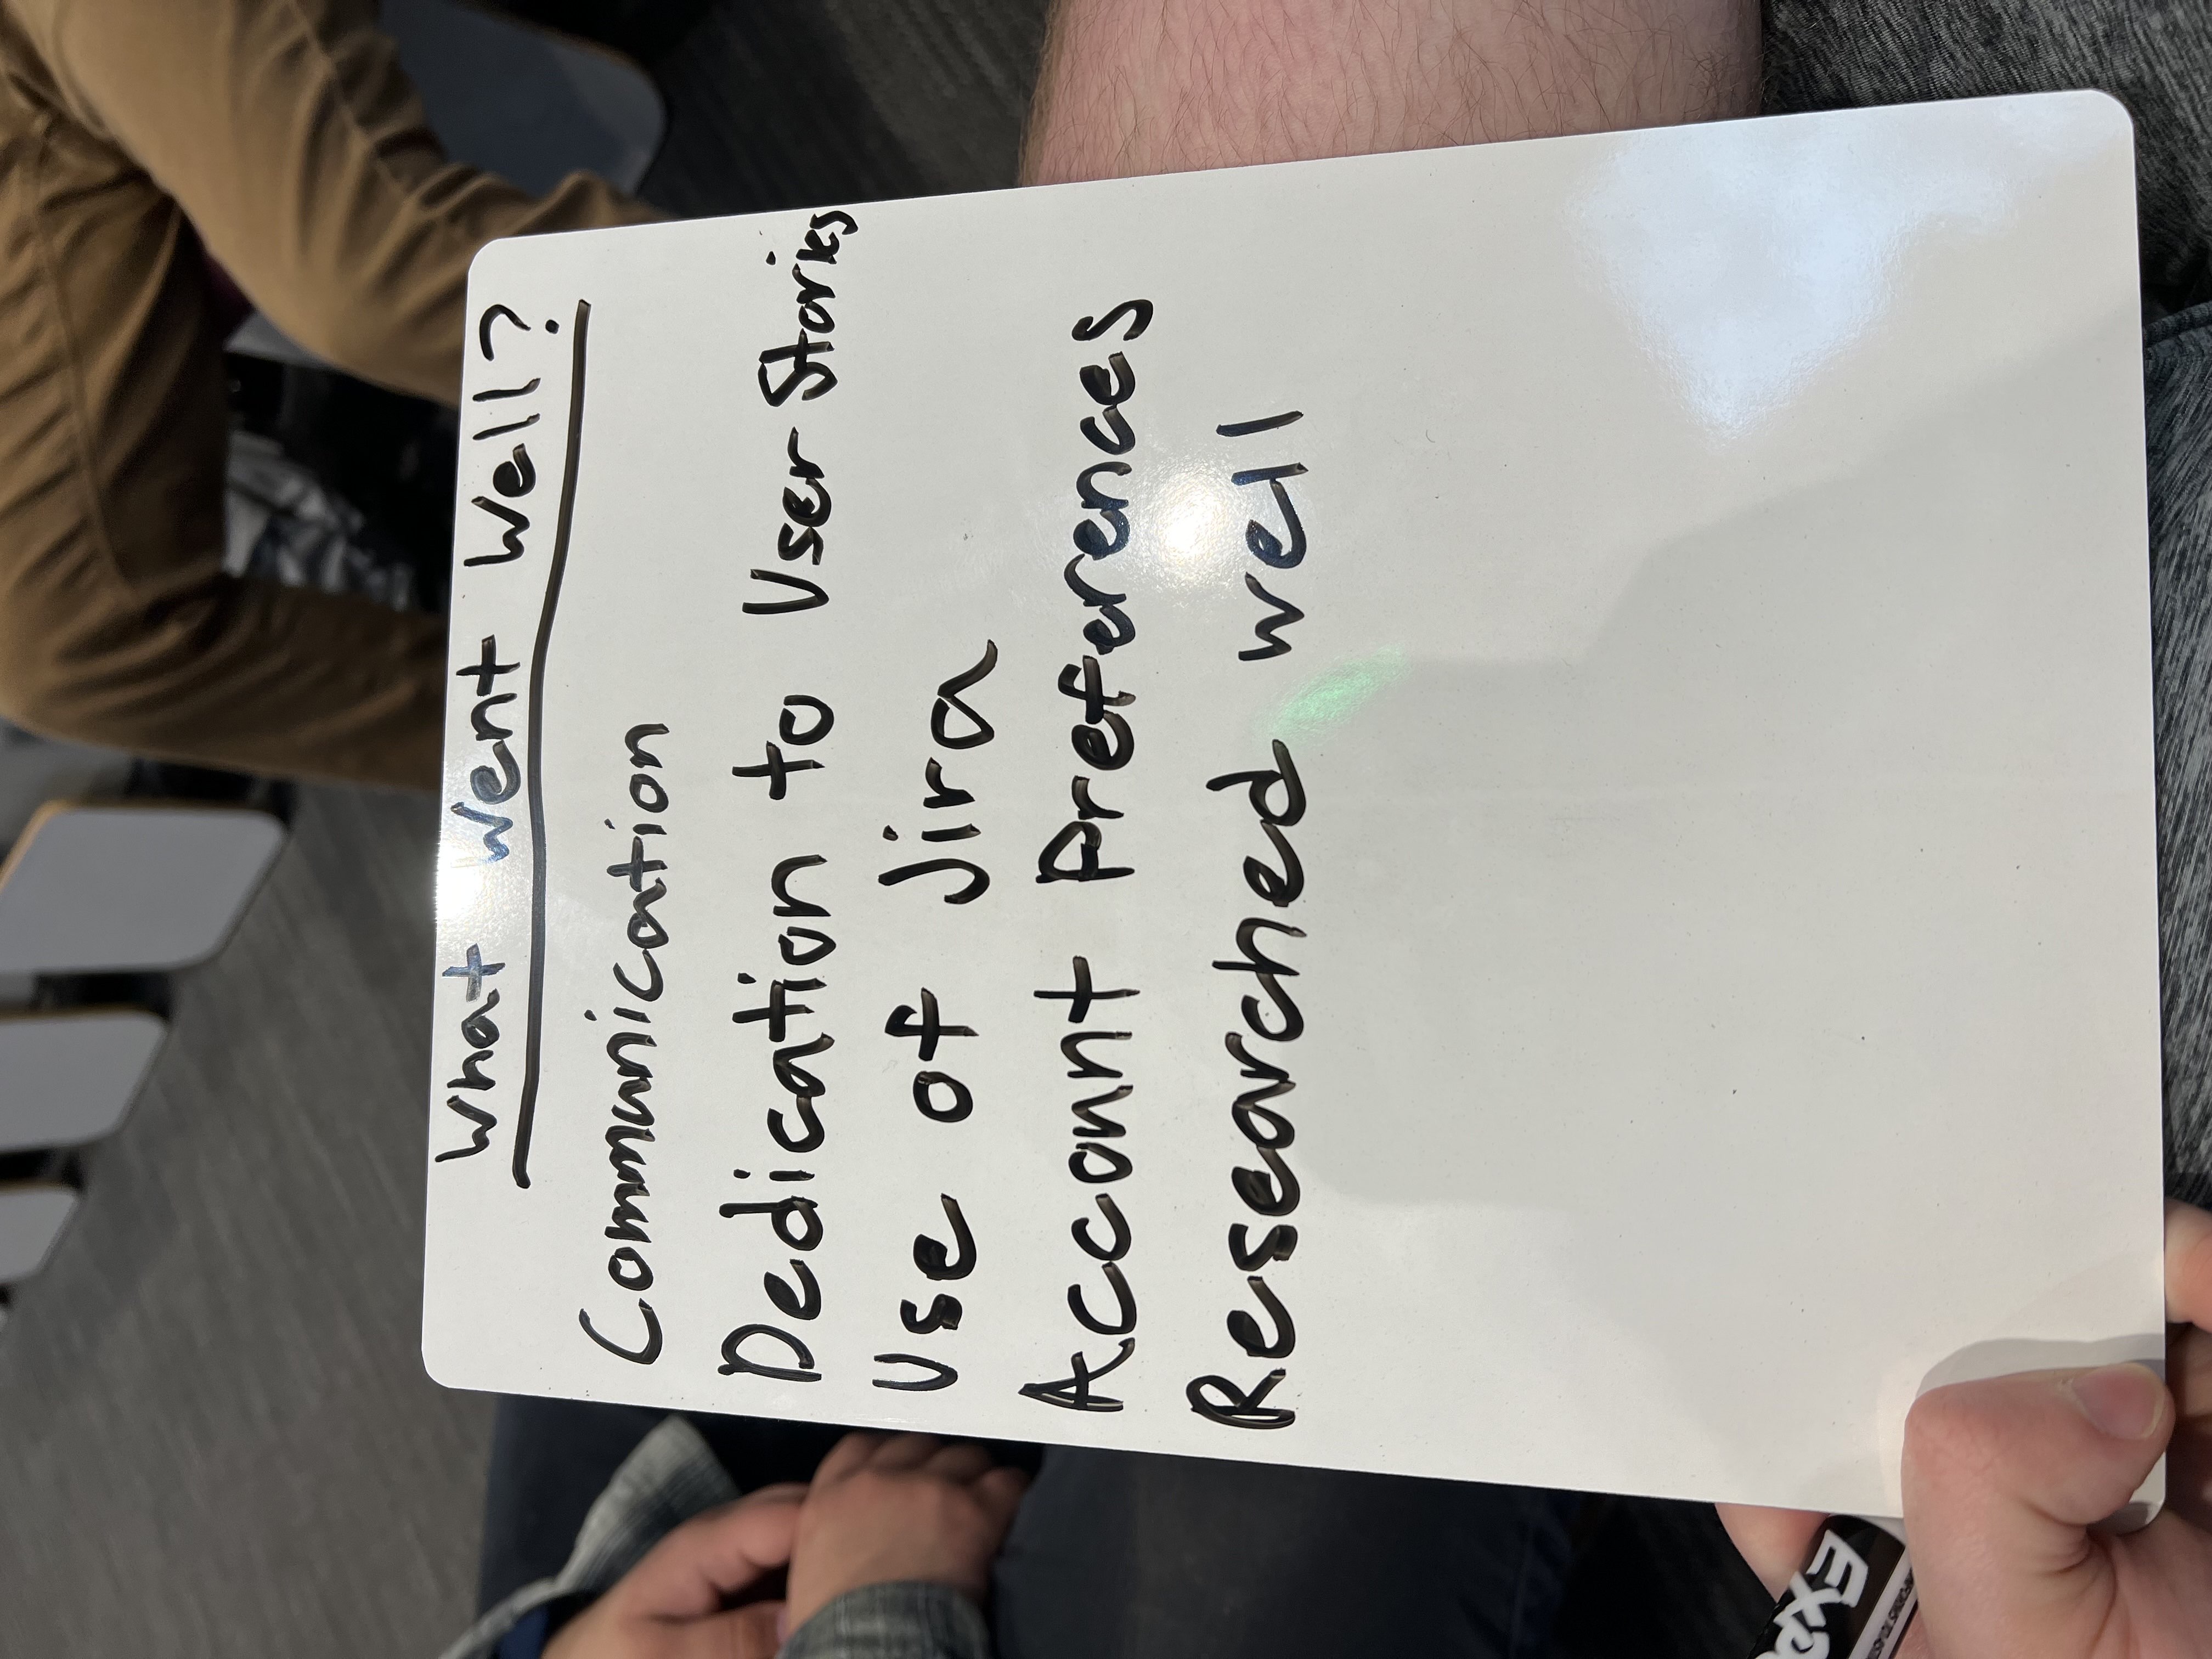 What Went Well?
Communication
Dedication to User Stories
Use of Jira
Account Preferences
Researched well
Expo